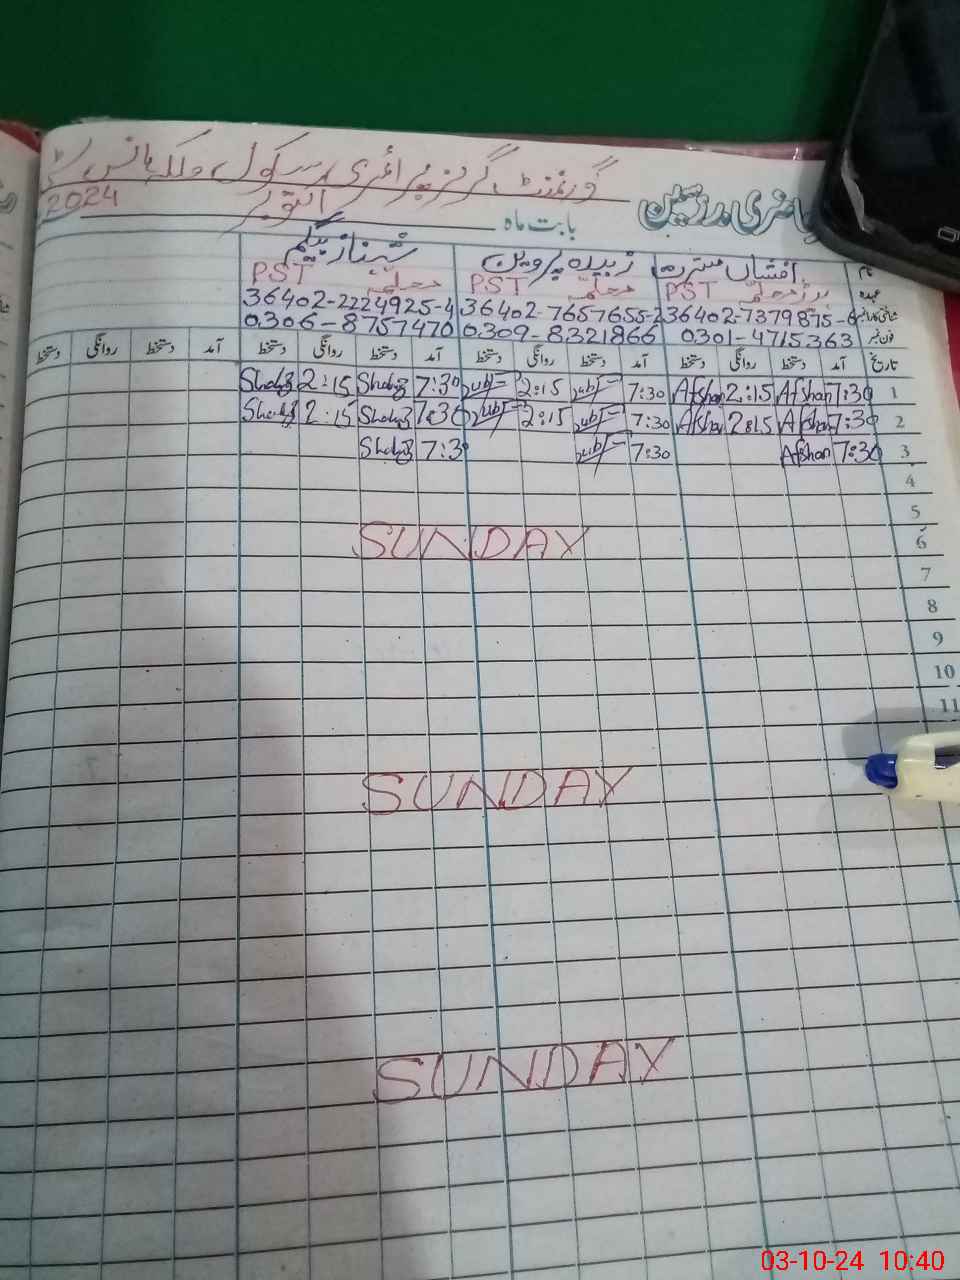 گورنمنٹ گرلز پرائمری سکول ملکہ ہانس
حاضری مدرسین
بابت ماہ اکتوبر 2024
نام افشاں زبیدہ پروین شہناز بیگم
عہدہ معلمہ PST معلمہ PST معلمہ PST
36402-7379875-6 36402-7657655-2 36402-2224925-4
فون نمبر 0301-4715363 0309-8321866 0306-8757470
تاریخ آمد دستخط روانگی دستخط آمد دستخط روانگی دستخط آمد دستخط روانگی دستخط آمد دستخط روانگی دستخط
1 7:30 Afshan 2:15 Afshan 7:30 2:15 7:30 2:15
2 7:30 Afshan 2:15 Afshan 7:30 2:15 7:30 2:15
3 7:30 Afshan 7:30 7:30
4
5
6 SUNDAY
7
8
9
10
11
SUNDAY
SUNDAY
03-10-24 10:40